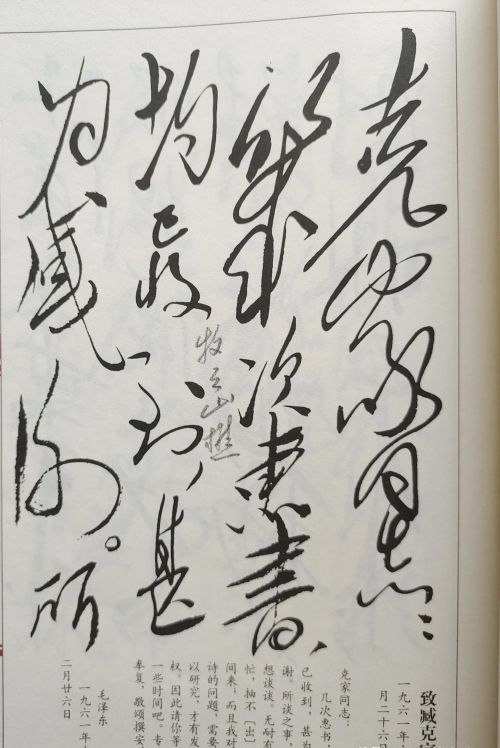 克家同志：
幾次惠書，
均已收到，甚
为感谢。所
牧之山樵
致臧克
一九六一年
月二十六日
克家同志：
几次惠书，
已收到，甚为
谢。所谈之事
想谈谈。无耐有
忙，抽不［出］
间来，而且我对
诗的问题，需要
以研究，才有发
权。因此请你等
一些时间吧。专
奉复，敬颂撰安
毛泽东
一九六一年
二月廿六日